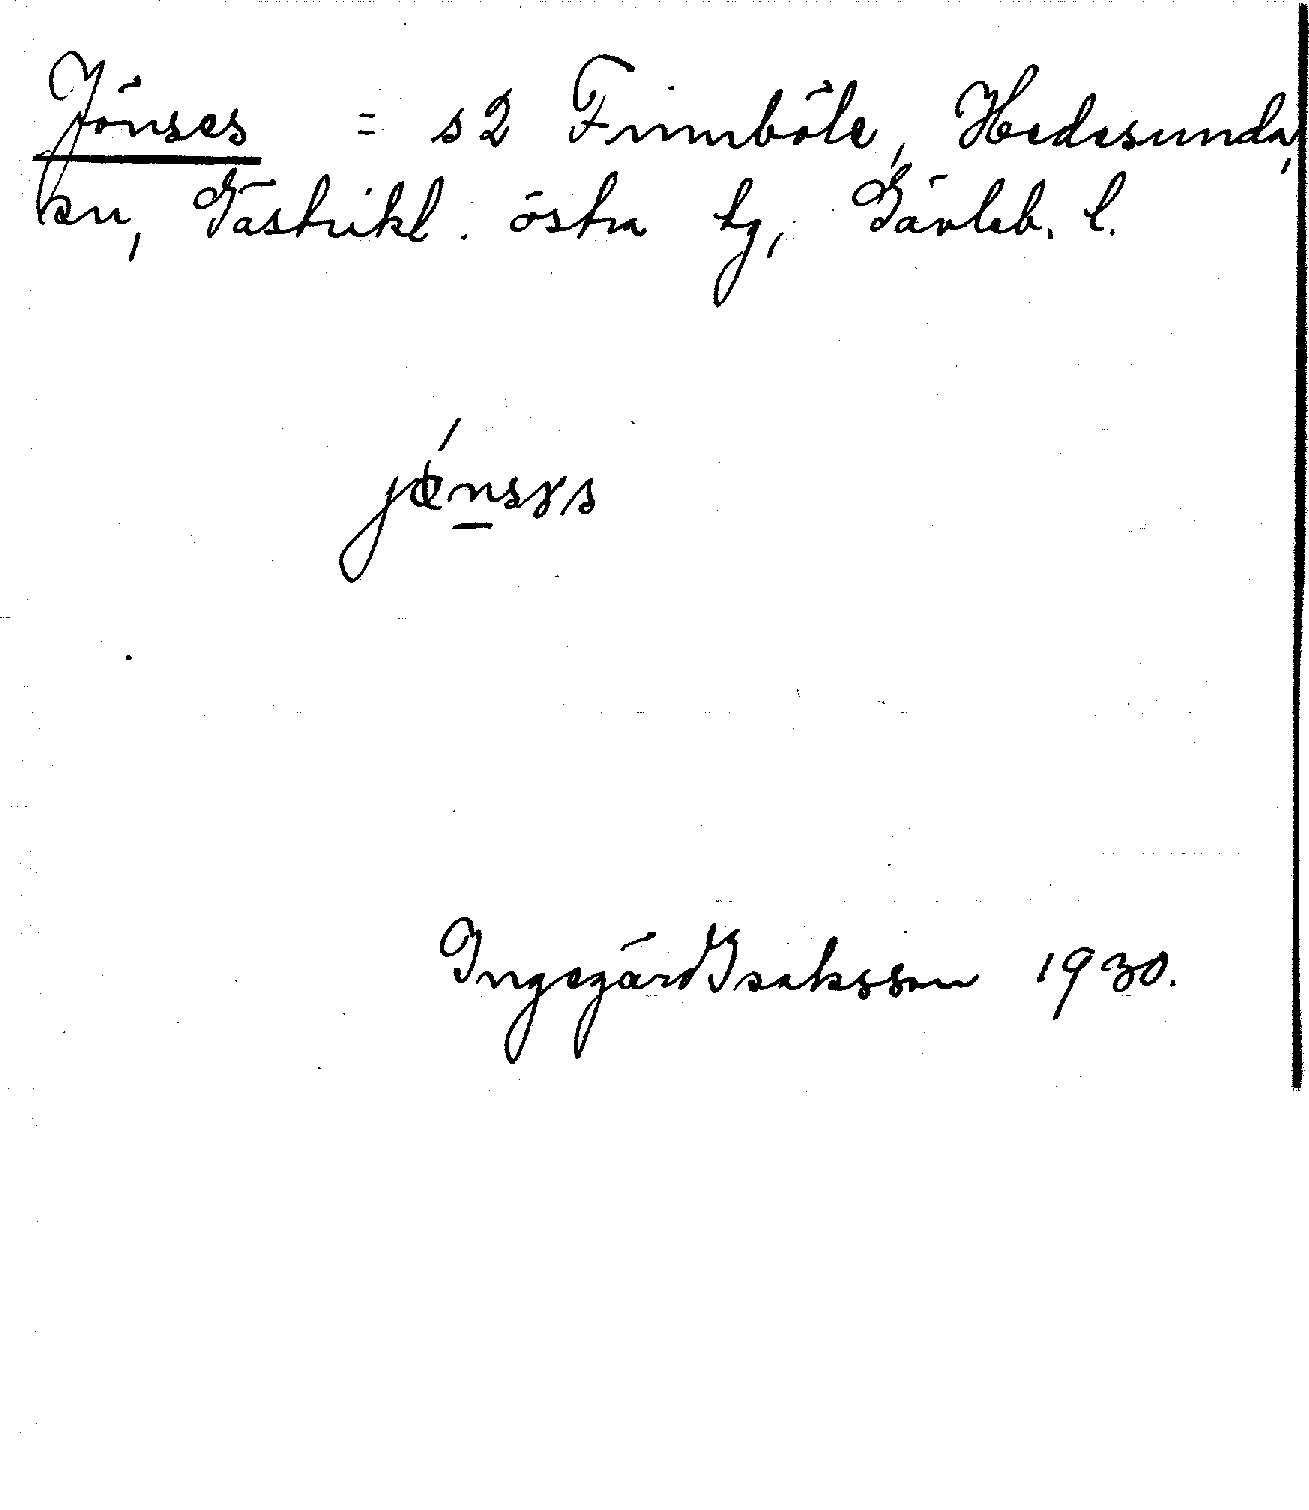 Jönses = s2 Finnböle, Hedesunda,
sn, Gästrikl. östra tg, Gävleb. l.
Ingegärd Isaksson 1930.